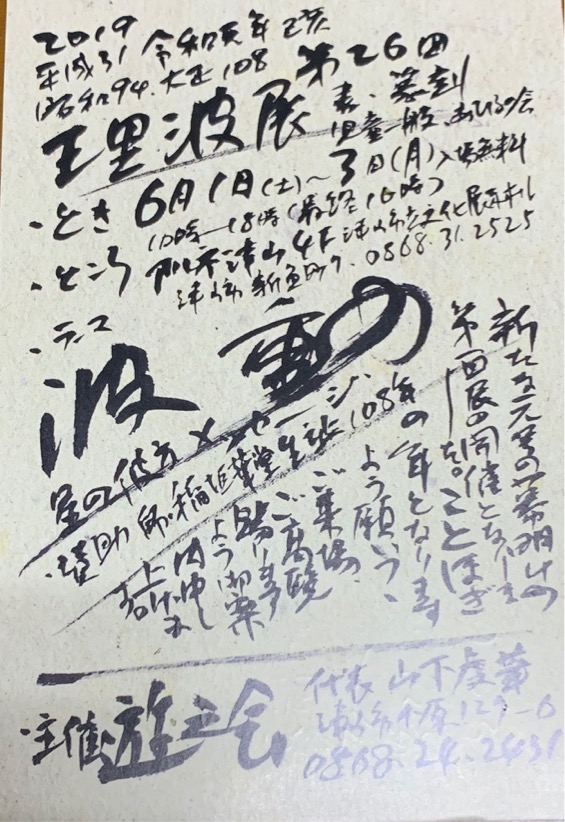 2019
平成31 令和元年 己亥
昭和94.大正108
王里波展 第26回
書、篆刻
児童一般、あひるの会
・とき 6月1日(土)~3日(月)入場無料
10時-18時(最終16時)
・ところ アルネ津山4F 津山市立文化展示ホール
津山市新魚町17.0868.31.2525
・テーマ
波動の
星の彼方メッセージ
・賛助 師・稲垣華堂生誕108年
新たな元号の幕明けの
第 回展の開催となりました
を。ことほぎ
の年となります
よう願う、
ご来場、
ご高覧
賜ります
よう御案
内申し
上げます
主催 遊正会
代表 山下虔華
津山市小原129-6
0868.24.2431